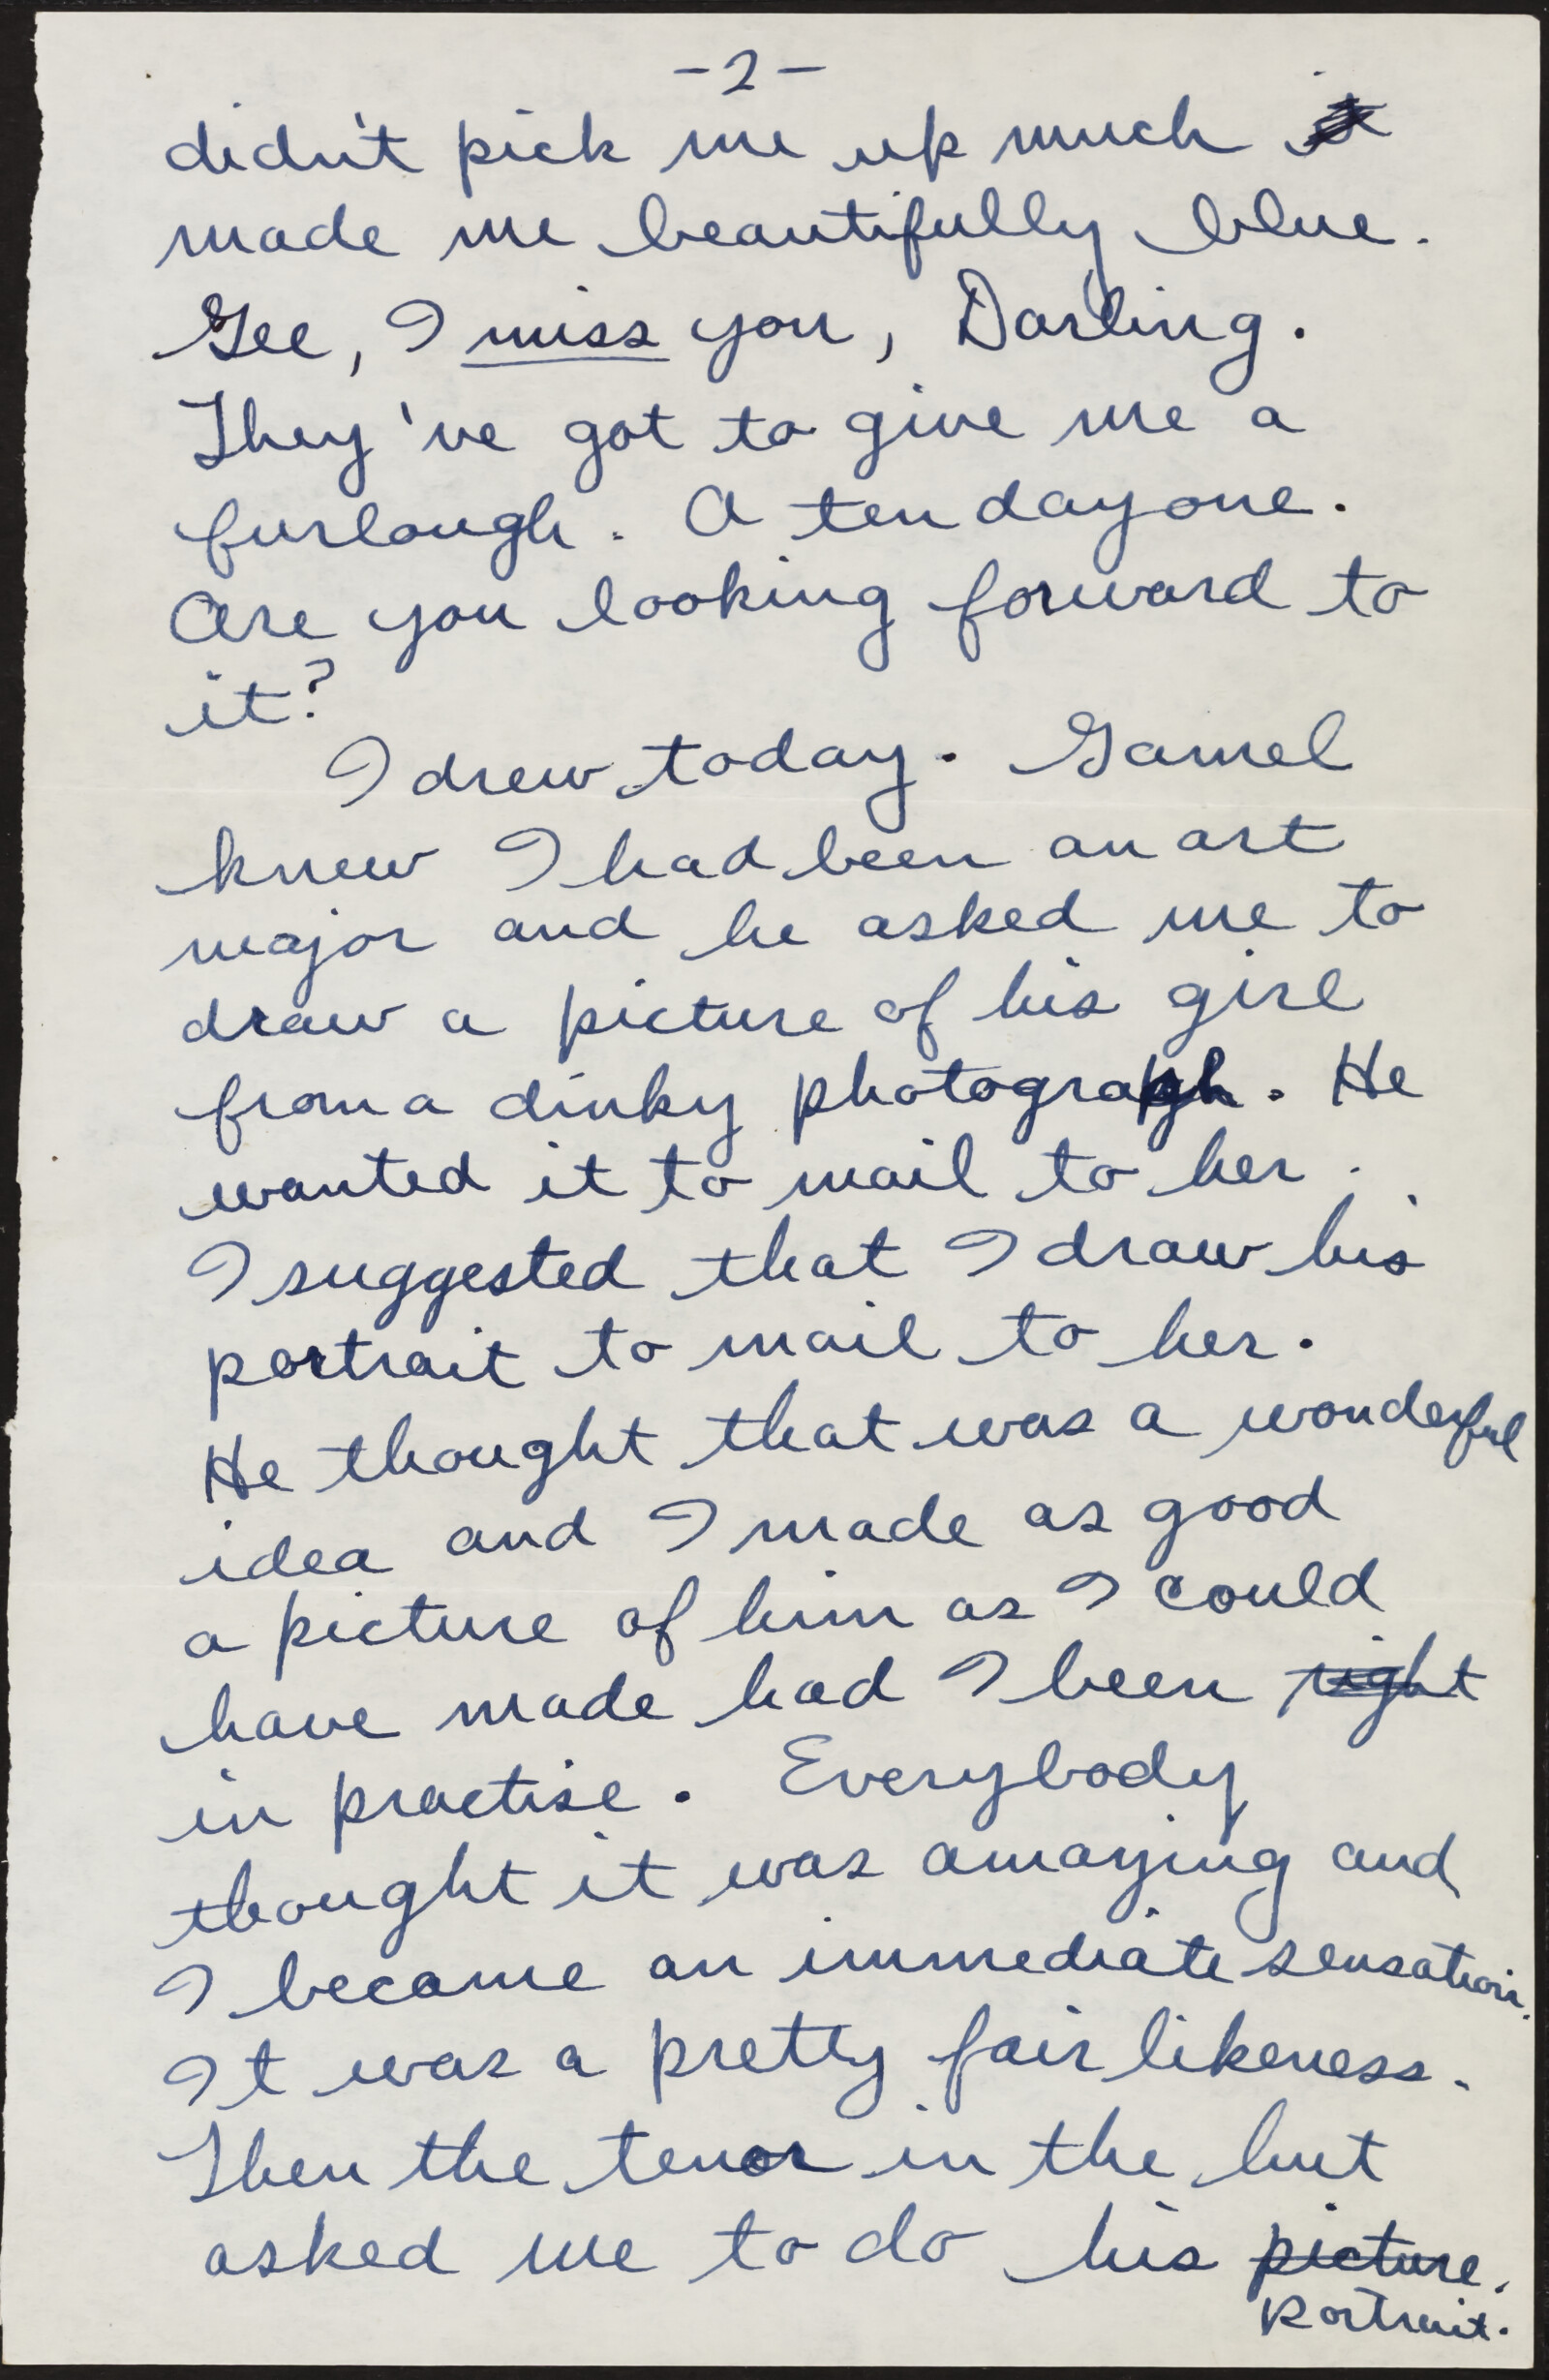 -2-
didn't pick me up much it
made me beautifully blue.
Gee, I miss you, Darling.
They've got to give me a
furlough. A ten day one.
Are you looking forward to
it?
I drew today. Gamel
knew I had been an art
major and he asked me to
draw a picture of his girl
from a dinky photograph. He
wanted it to mail to her.
I suggested that I draw his
portrait to mail to her.
He thought that was a wonderful
idea and I made as good
a picture of him as I could
have made had I been right
in practise. Everybody
thought it was amazing and
I became an immediate sensation.
It was a pretty fair likeness.
Then the tenor in the hut
asked me to do his picture.
Portrait.